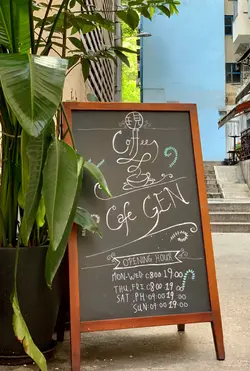 Coffee
Cafe GEN
OPENING HOUR
MON-WED 08:00-19:00
THU, FRI 08:00-19:00
SAT, PH 09:00-19:00
SUN 09:00-19:00